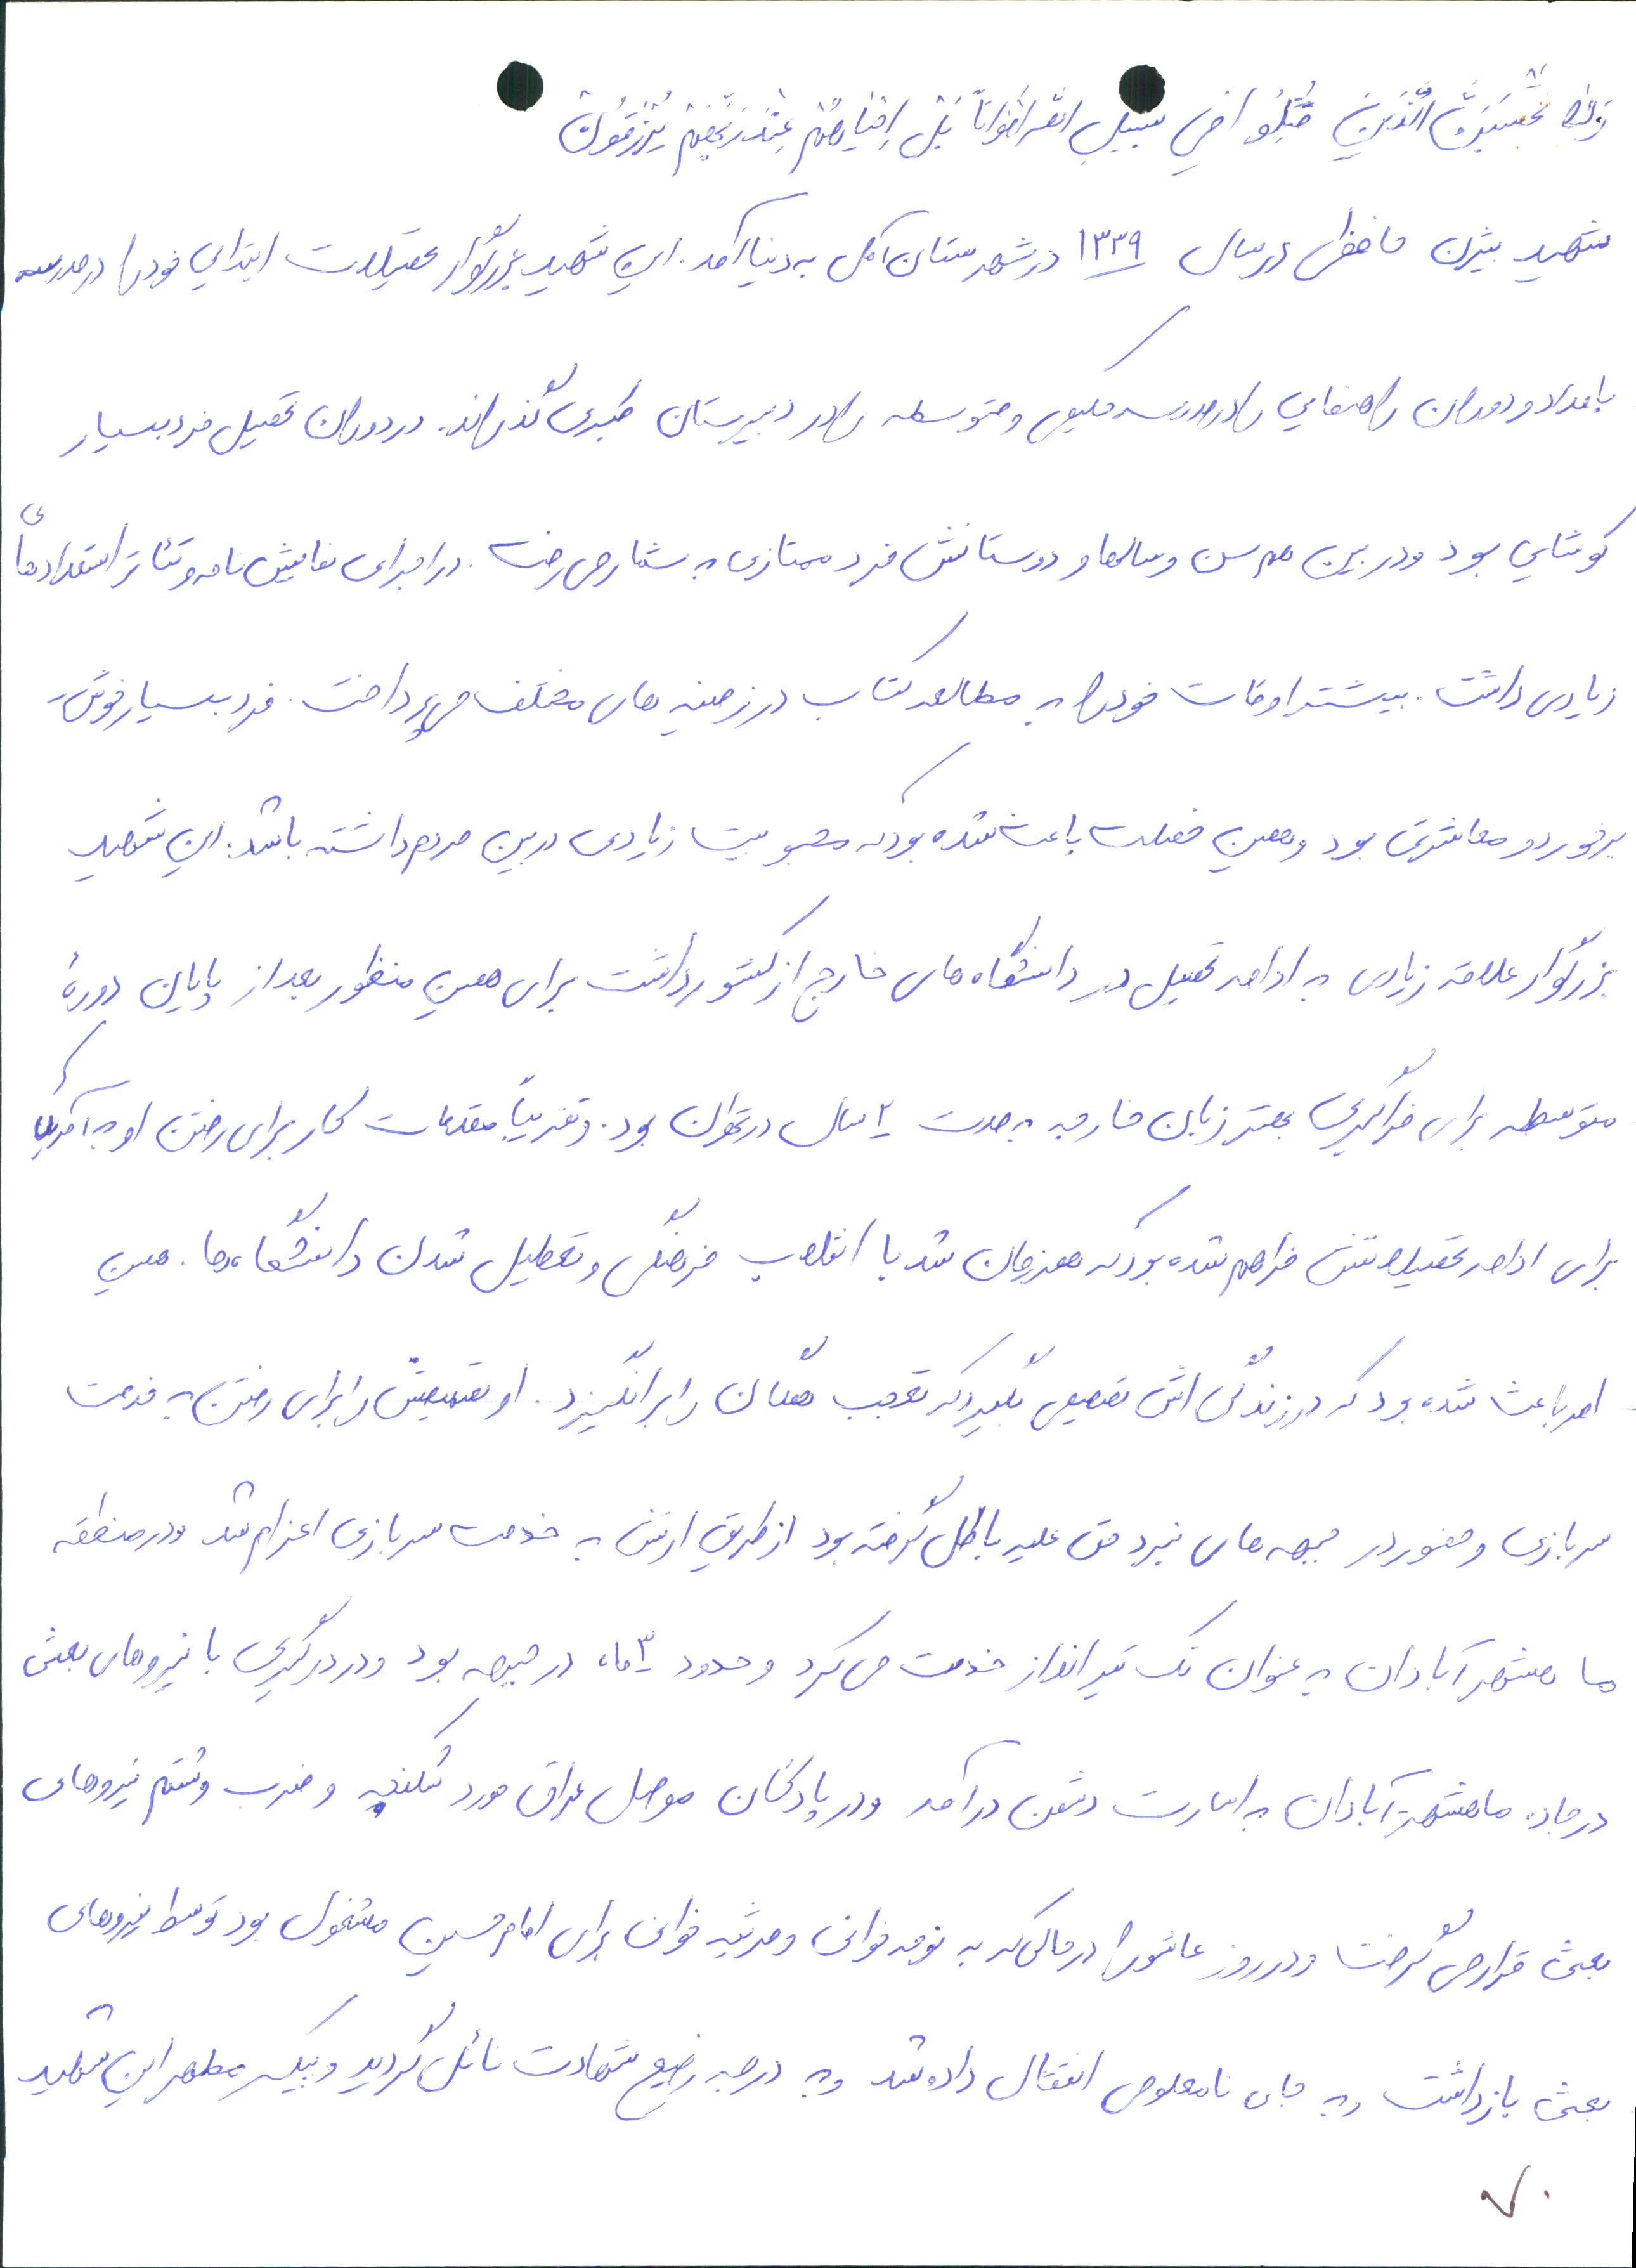 وَلا تَحْسَبَنَّ الَّذينَ قُتِلُوا فِي سَبِيلِ اللهِ اَمْوَاتاً بَلْ اَحْيَاءٌ عِنْدَ رَبِّهِمْ يُرْزَقُونَ
شهید بیژن حافظی در سال ۱۳۳۹ در شهرستان آمل به دنیا آمد. این شهید بزرگوار تحصیلات ابتدایی خود را در مدرسه
بامداد و دوران راهنمایی را در مدرسه حکیمی و متوسطه را در دبیرستان طبری گذراند. در دوران تحصیل فرد بسیار
کوشایی بود و در بین هم سن و سالها و دوستانش فرد ممتازی به شمار می رفت. در اجرای نمایش نامه و تئاتر استعدادهای
زیادی داشت. بیشتر اوقات خود را به مطالعه کتاب در زمینه های مختلف می پرداخت. فرد بسیار خوش
برخورد و معاشرتی بود و همین خصلت باعث شده بود که محبوبیت زیادی در بین مردم داشته باشد. این شهید
بزرگوار علاقه زیادی به ادامه تحصیل در دانشگاه های خارج از کشور داشت برای همین منظور بعد از پایان دورهٔ
متوسطه برای فراگیری بهتر زبان خارجه به مدت ۲ سال در تهران بود. و تقریباً مقدمات کار برای رفتن او به آمریکا
برای ادامه تحصیلاتش فراهم شده بود که همزمان شد با انقلاب فرهنگی و تعطیل شدن دانشگاه ها. همین
امر باعث شده بود که در زندگی اش تصمیمی بگیرد که تعجب همگان را برانگیزد. او تصمیمش را برای رفتن به خدمت
سربازی و حضور در جبهه های نبرد حق علیه باطل گرفته بود از طریق ارتش به خدمت سربازی اعزام شد و در منطقه
ماهشهر آبادان به عنوان تک تیرانداز خدمت می کرد و حدود ۳ ماه در جبهه بود و در درگیری با نیروهای بعثی
در جاده ماهشهر آبادان به اسارت دشمن درآمد و در پادگان موصل عراق مورد شکنجه و ضرب و شتم نیروهای
بعثی قرار می گرفت و در روز عاشورا در حالی که به نوحه خوانی و مرثیه خوانی برای امام حسین مشغول بود توسط نیروهای
بعثی بازداشت و به جای نامعلومی انتقال داده شد و به درجه رفیع شهادت نائل گردید و پیکر مطهر این شهید
۷۰